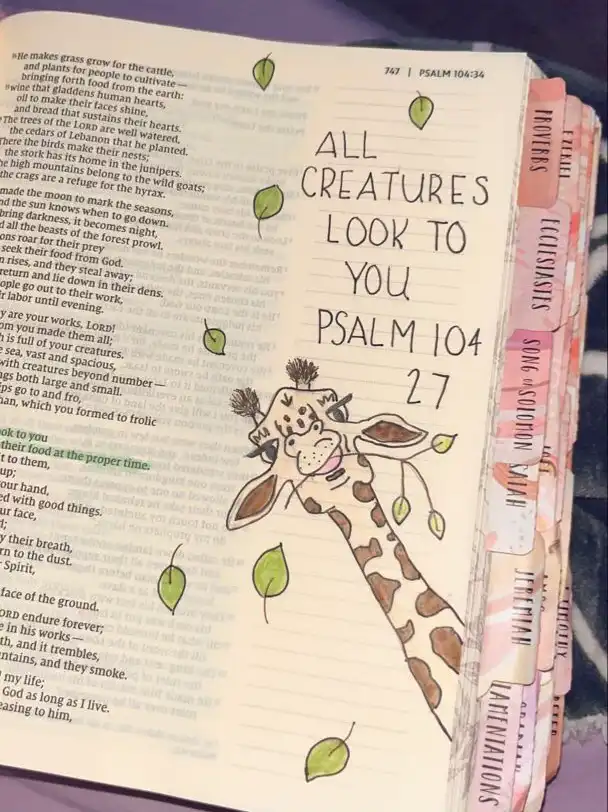 747 | PSALM 104:34
He makes grass grow for the cattle,
and plants for people to cultivate—
bringing forth food from the earth:
wine that gladdens human hearts,
oil to make their faces shine,
and bread that sustains their hearts.
The trees of the LORD are well watered,
the cedars of Lebanon that he planted.
There the birds make their nests;
the stork has its home in the junipers.
he high mountains belong to the wild goats;
the crags are a refuge for the hyrax.
made the moon to mark the seasons,
nd the sun knows when to go down.
bring darkness, it becomes night,
d all the beasts of the forest prowl.
ons roar for their prey
seek their food from God.
n rises, and they steal away;
return and lie down in their dens.
ople go out to their work,
ir labor until evening.
y are your works, LORD!
om you made them all;
h is full of your creatures.
e sea, vast and spacious,
with creatures beyond number—
ngs both large and small.
ips go to and fro,
han, which you formed to frolic
ook to you
their food at the proper time.
it to them,
up;
our hand,
ed with good things.
ur face,
d;
y their breath,
rn to the dust.
Spirit,
face of the ground.
ORD endure forever;
e in his works—
th, and it trembles,
ntains, and they smoke.
my life;
God as long as I live.
easing to him,
ALL
CREATURES
LOOK TO
YOU
PSALM 104
27
PROVERBS
ECCLESIASTES
SONG of SOLOMON
ISAIAH
JEREMIAH
LAMENTATIONS
EZEKIEL
TIMOTHY